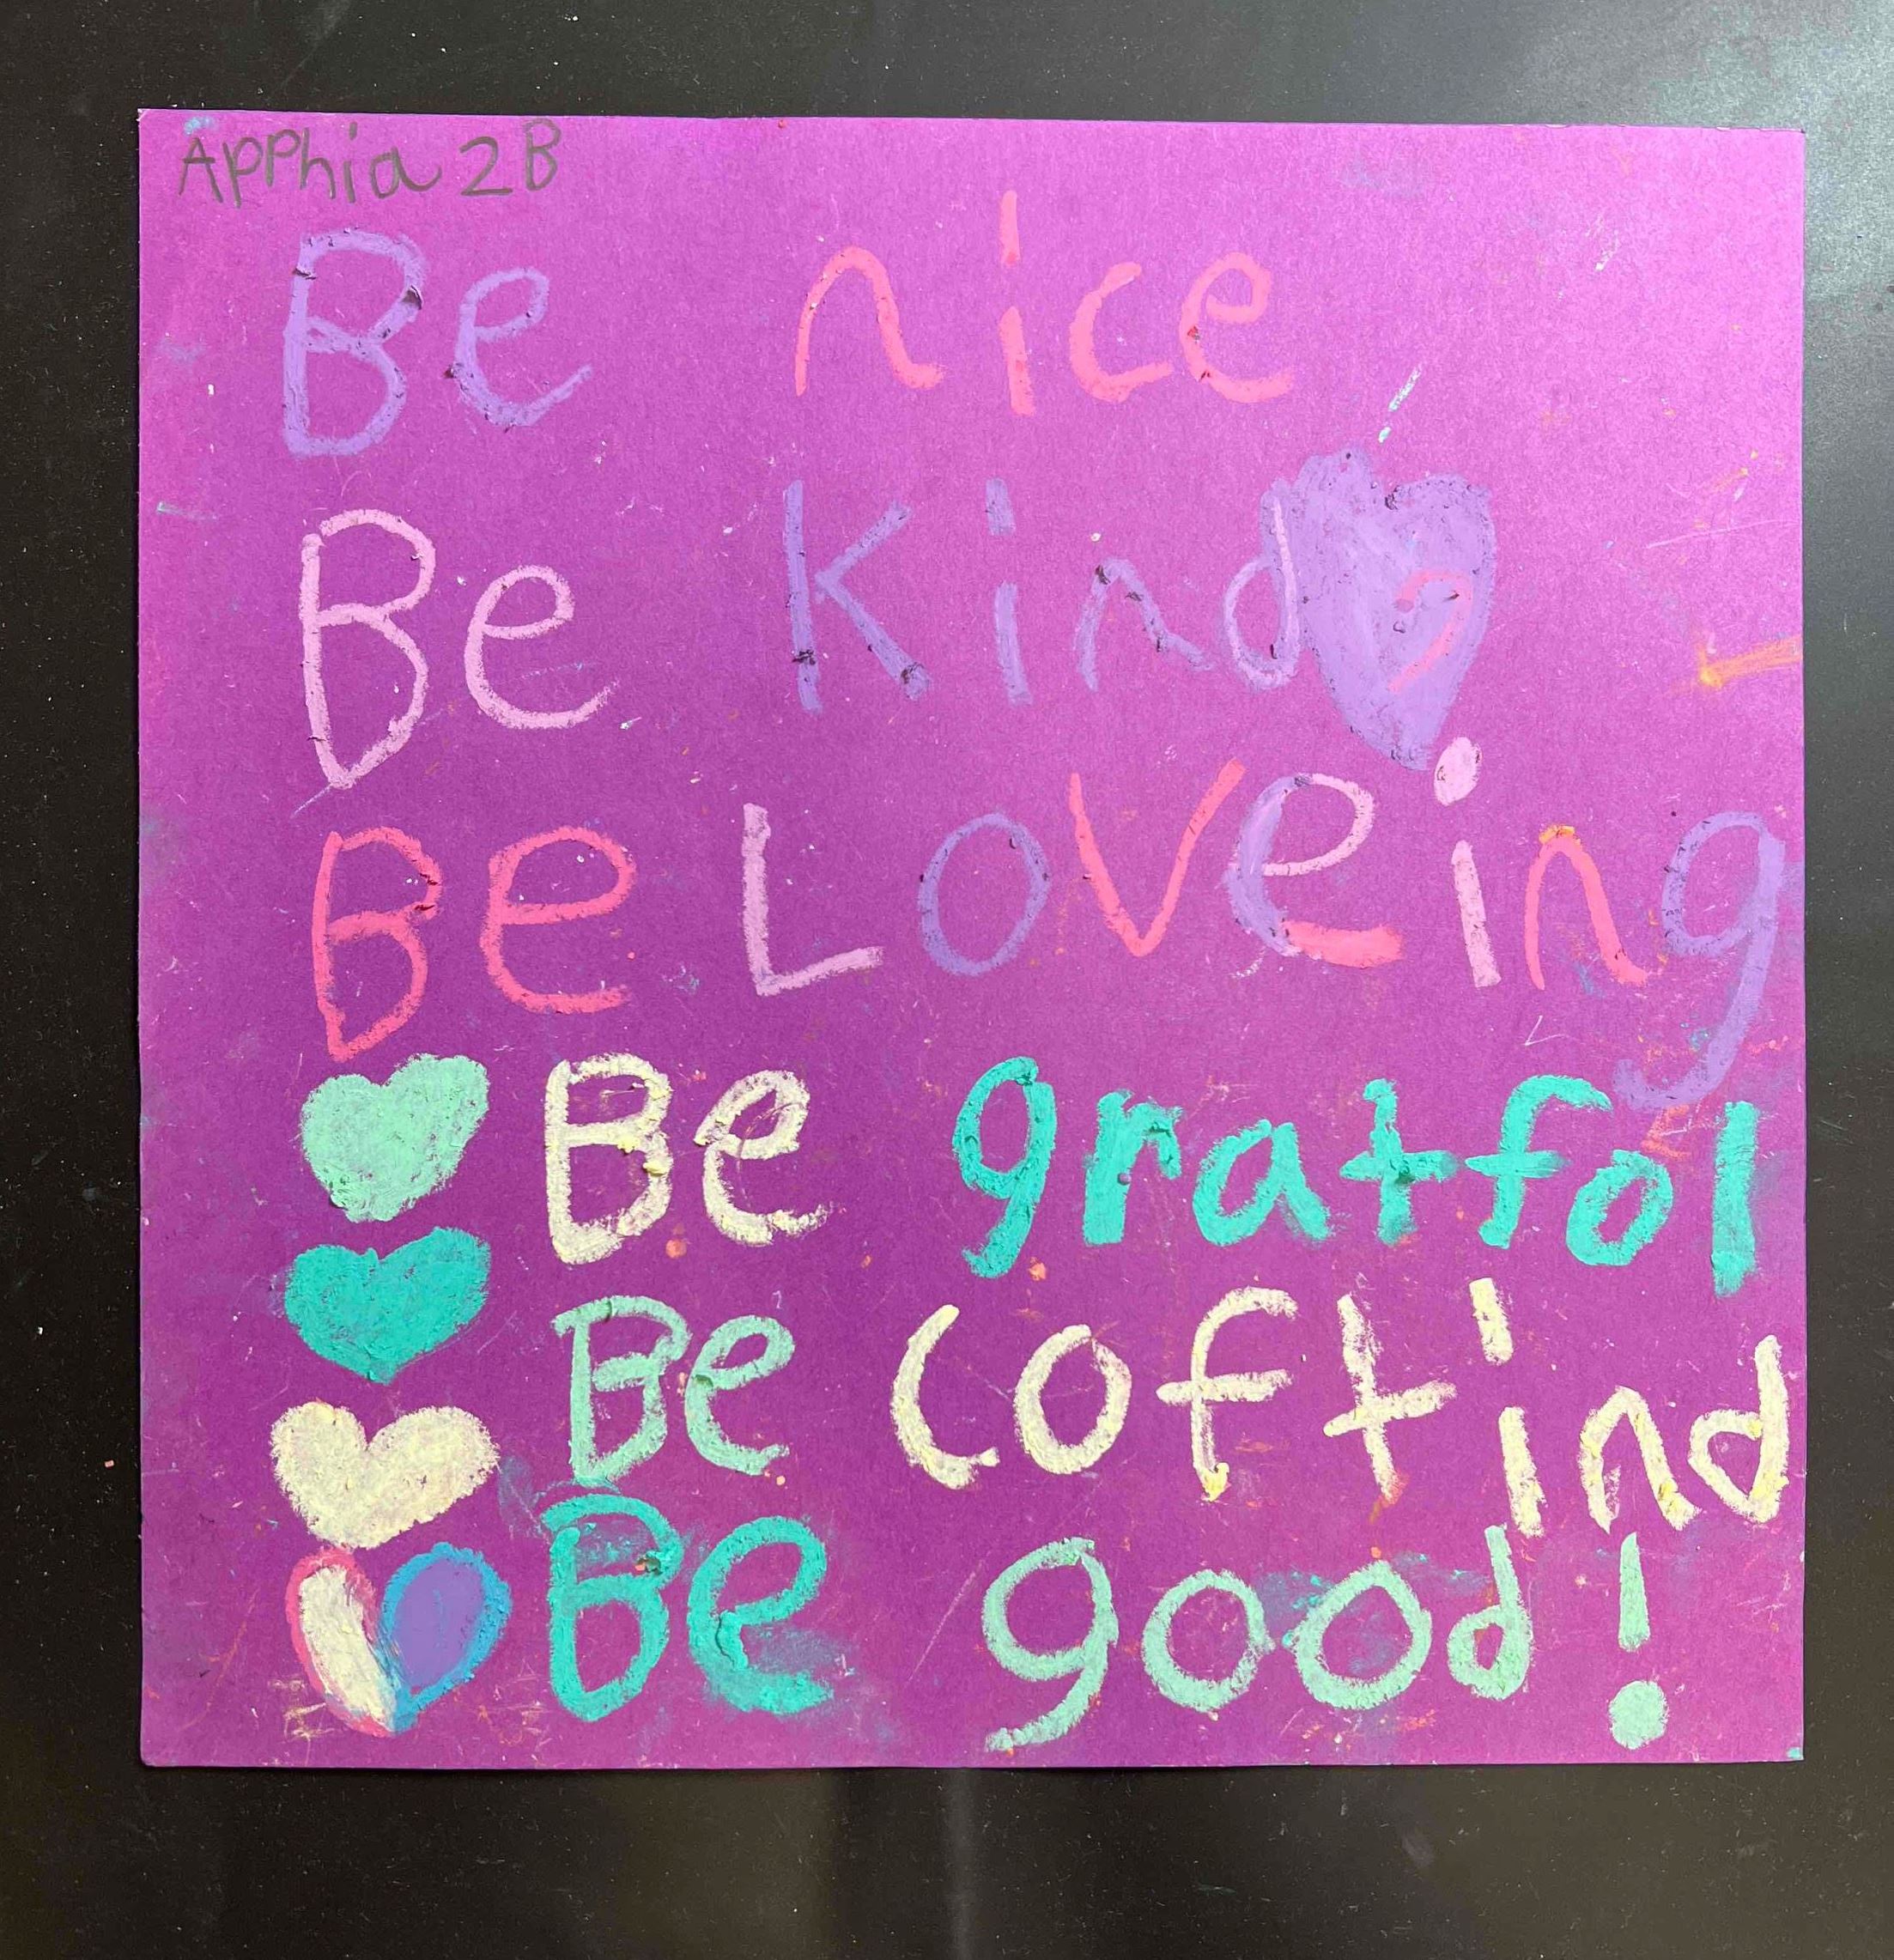 Apphia 2B
Be nice
Be kind
Be Loveing
Be gratfol
Be coftind
Be good!